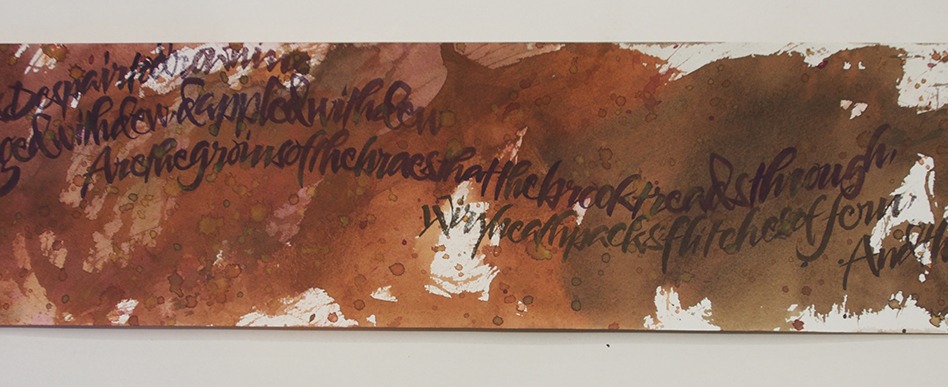 Despair to drowning
ged with dew dappled with dew
Are the groins of the braes that the brook treads through,
Wiry heathpacks flitches of fern
And